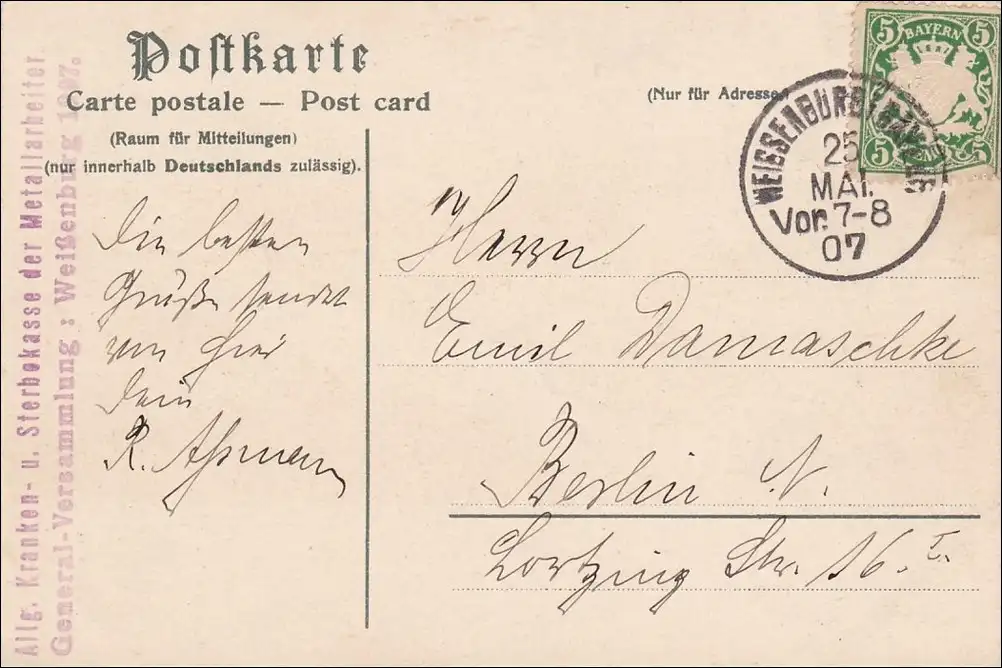 Postkarte
Carte postale — Post card
(Nur für Adresse)
(Raum für Mitteilungen)
(nur innerhalb Deutschlands zulässig).
BAYERN
5 5
5 PFENNIG 5
WEISSENBURG
25
MAI.
Vor. 7-8
07
Allg. Kranken- u. Sterbekasse der Metallarbeiter
General-Versammlung: Weißenburg 1907.
Die besten
Grüße sendet
von hier
Dein
R.
Herrn
Emil Damaschke
Berlin N.
Lortzing Str. 16. I.